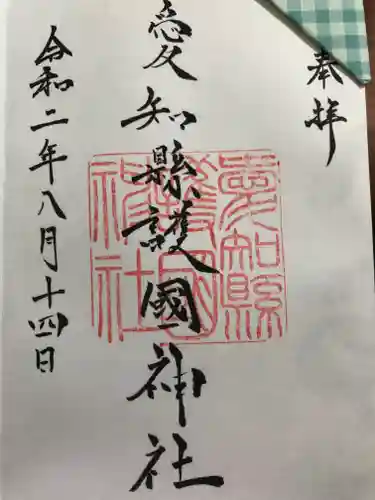 奉拝
愛知縣護國神社
愛知縣護國神社
令和二年八月十四日